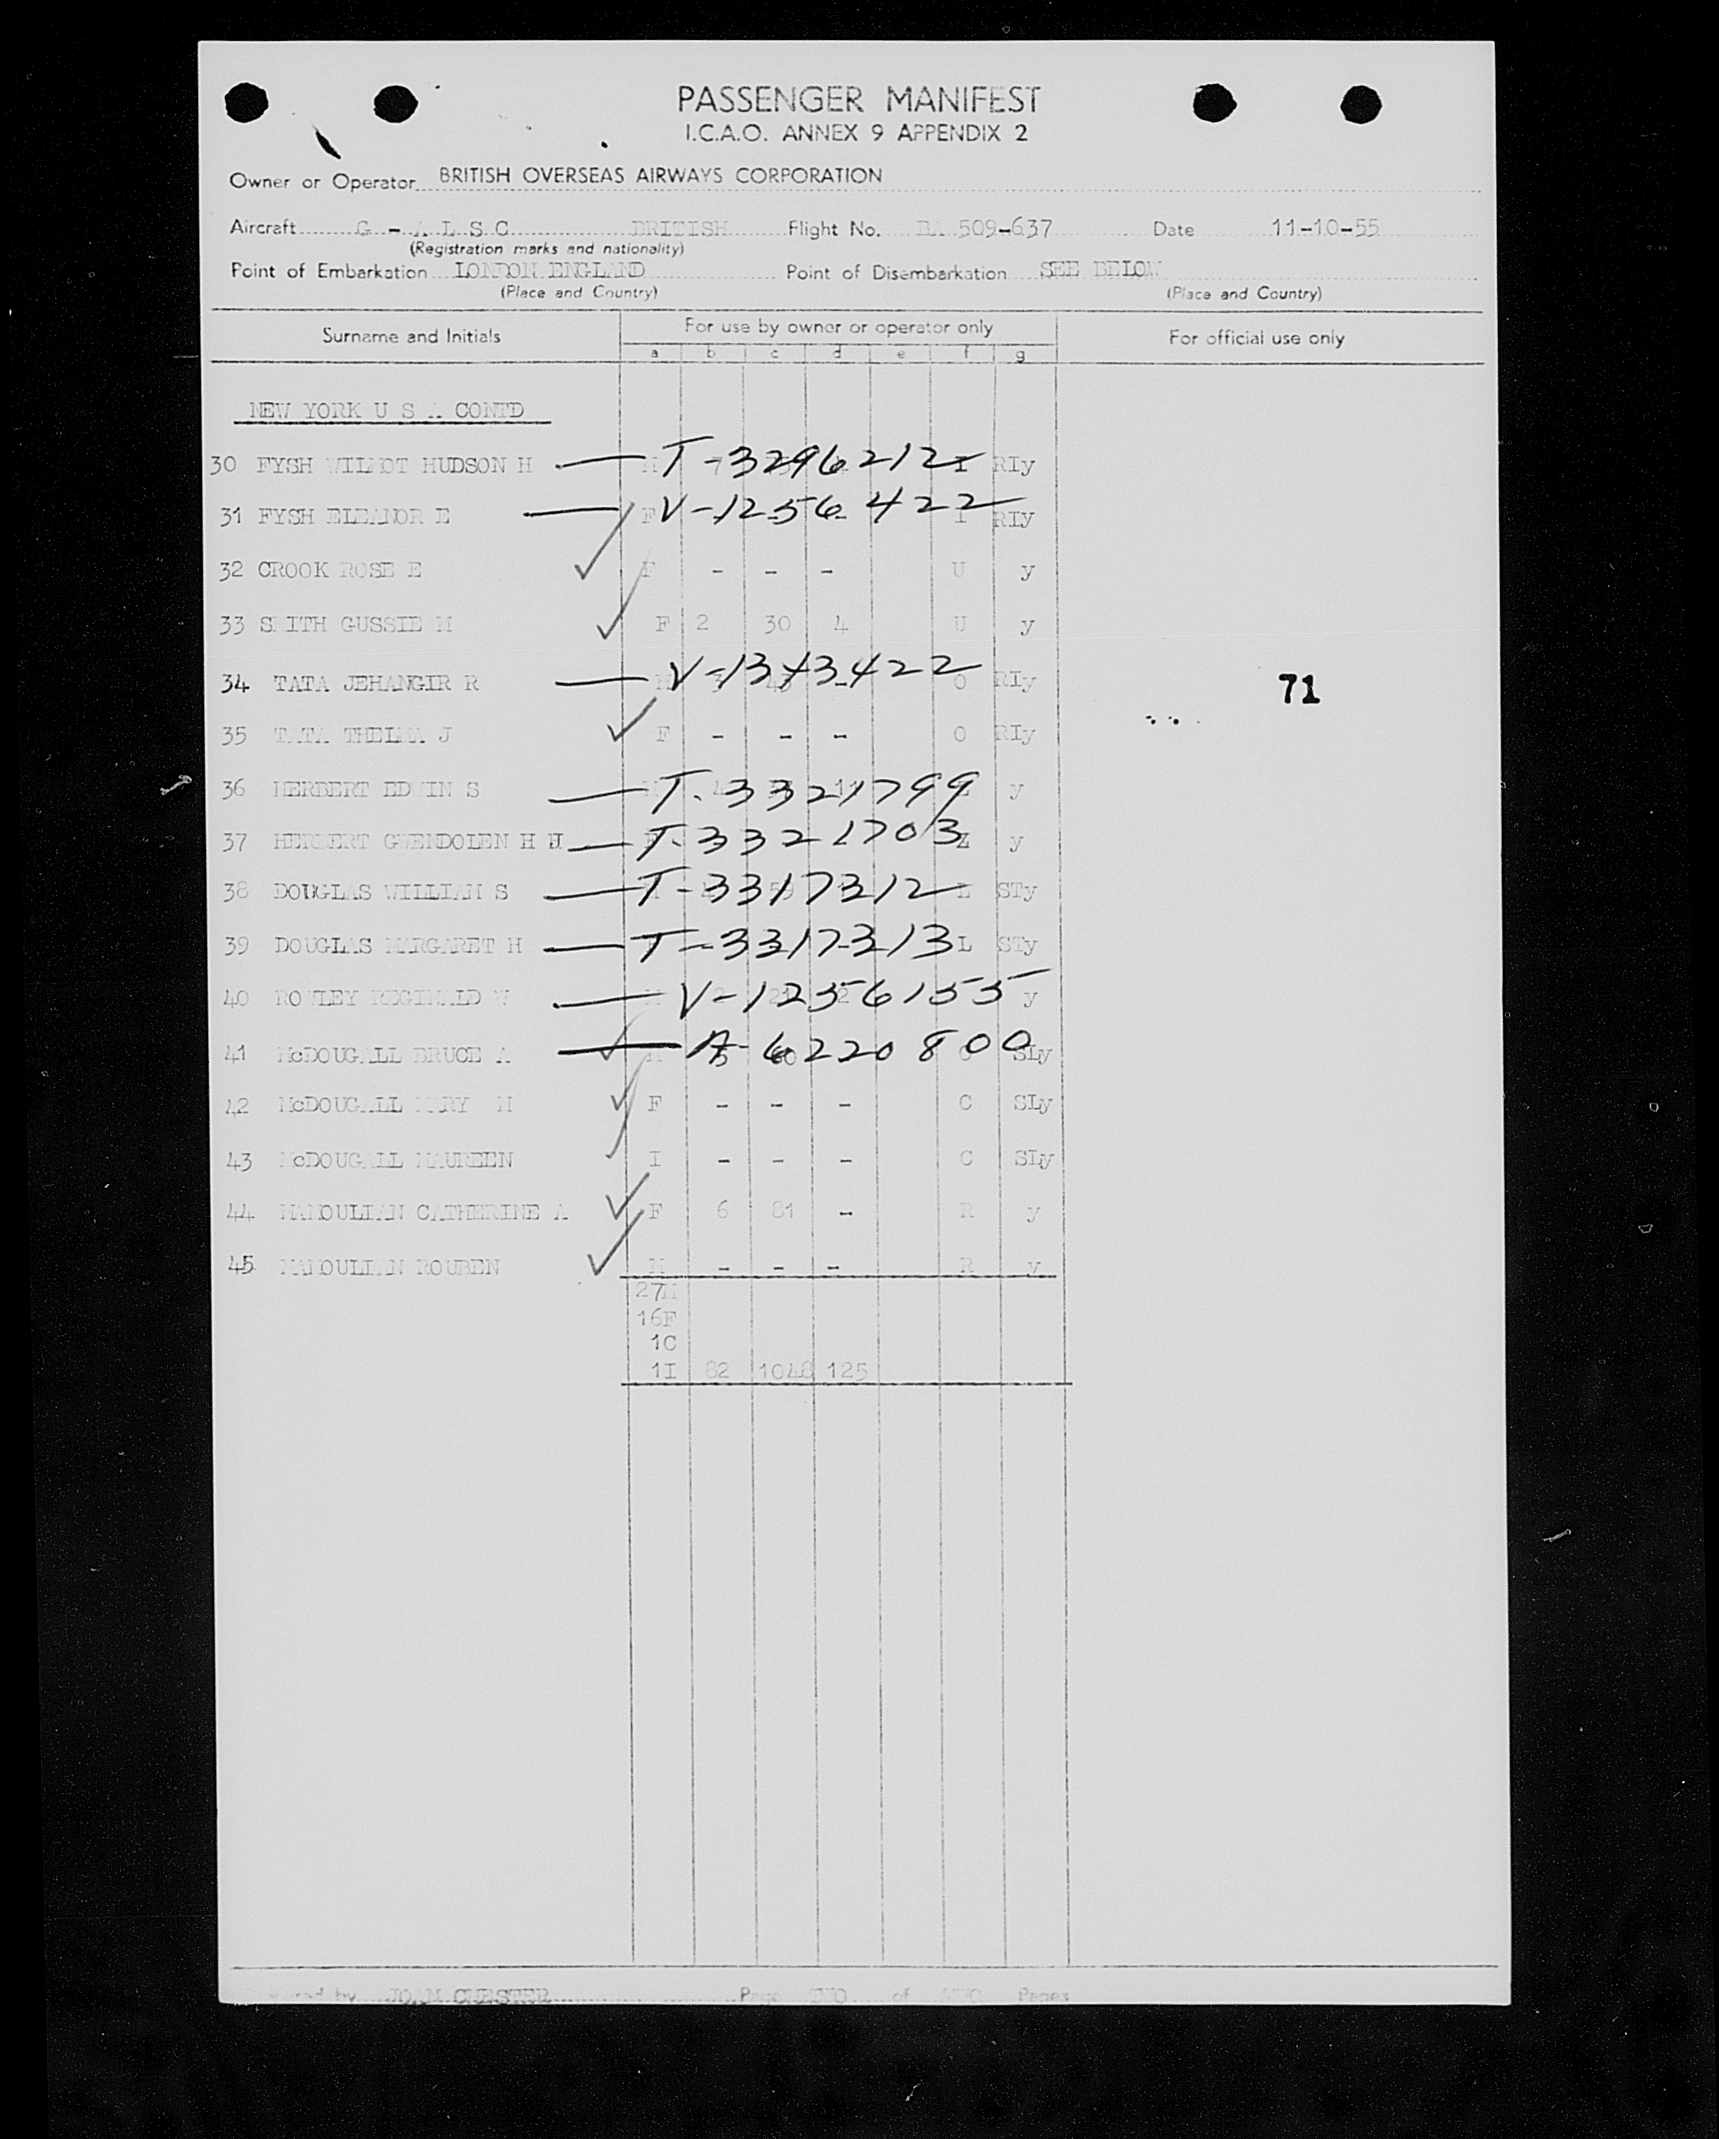 PASSENGER MANIFEST
I.C.A.O. ANNEX 9 APPENDIX 2
Owner or Operator BRITISH OVERSEAS AIRWAYS CORPORATION
Aircraft G - A L S C BRITISH Flight No. BA 509-637 Date 11-10-55
(Registration marks and nationality)
Point of Embarkation LONDON ENGLAND Point of Disembarkation SEE BELOW
(Place and Country) (Place and Country)
Surname and Initials For use by owner or operator only For official use only
a b c d e f g
NEW YORK U S A CONTD
30 FYSH WILMOT HUDSON H T-3296212 I RIy
31 FYSH ELEANOR E F V-1256422 I RIy
32 CROOK ROSE E F - - - U y
33 SMITH GUSSIE M F 2 30 4 U y
34 TATA JEHANGIR R M V-1343422 O RIy
71
35 TATA THELMA J F - - - O RIy
36 HERBERT EDWIN S T-3321799 y
37 HERBERT GWENDOLEN H T-3321703 Z y
38 DOUGLAS WILLIAM S T-3317312 L STy
39 DOUGLAS MARGARET H T-3317313 L STy
40 ROWLEY REGINALD W V-12356155 y
41 McDOUGALL BRUCE A A-6220800 SLy
42 McDOUGALL MARY M F - - - C SLy
43 McDOUGALL MAUREEN I - - - C SLy
44 MAMOULIAN CATHERINE A F 6 81 - R y
45 MAMOULIAN ROUBEN M - - - R y
27M
16F
1C
1I 82 1048 125
JOAN CHESTER Page TWO of TWO Pages